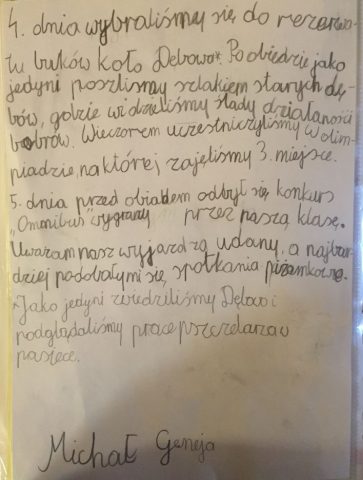 4. dnia wybraliśmy się do rezerwa-
tu buków koło Dębowo*. Po obiedzie jako
jedyni poszliśmy szlakiem starych dę-
bów, gdzie widzieliśmy ślady działaności
bobrów. Wieczorem uczestniczyliśmy w olim-
piadzie, na której zajęliśmy 3. miejsce.
5. dnia przed obiadem odbył się konkurs
„Omnibus" wygrany przez naszą klasę.
Uważam nasz wyjazd za udany, a najbar-
dziej podobały mi się spotkania piżamkowe.
*Jako jedyni zwiedziliśmy Dębowo i
podglądaliśmy pracę pszczelarza w
pasiece.
Michał Geneja